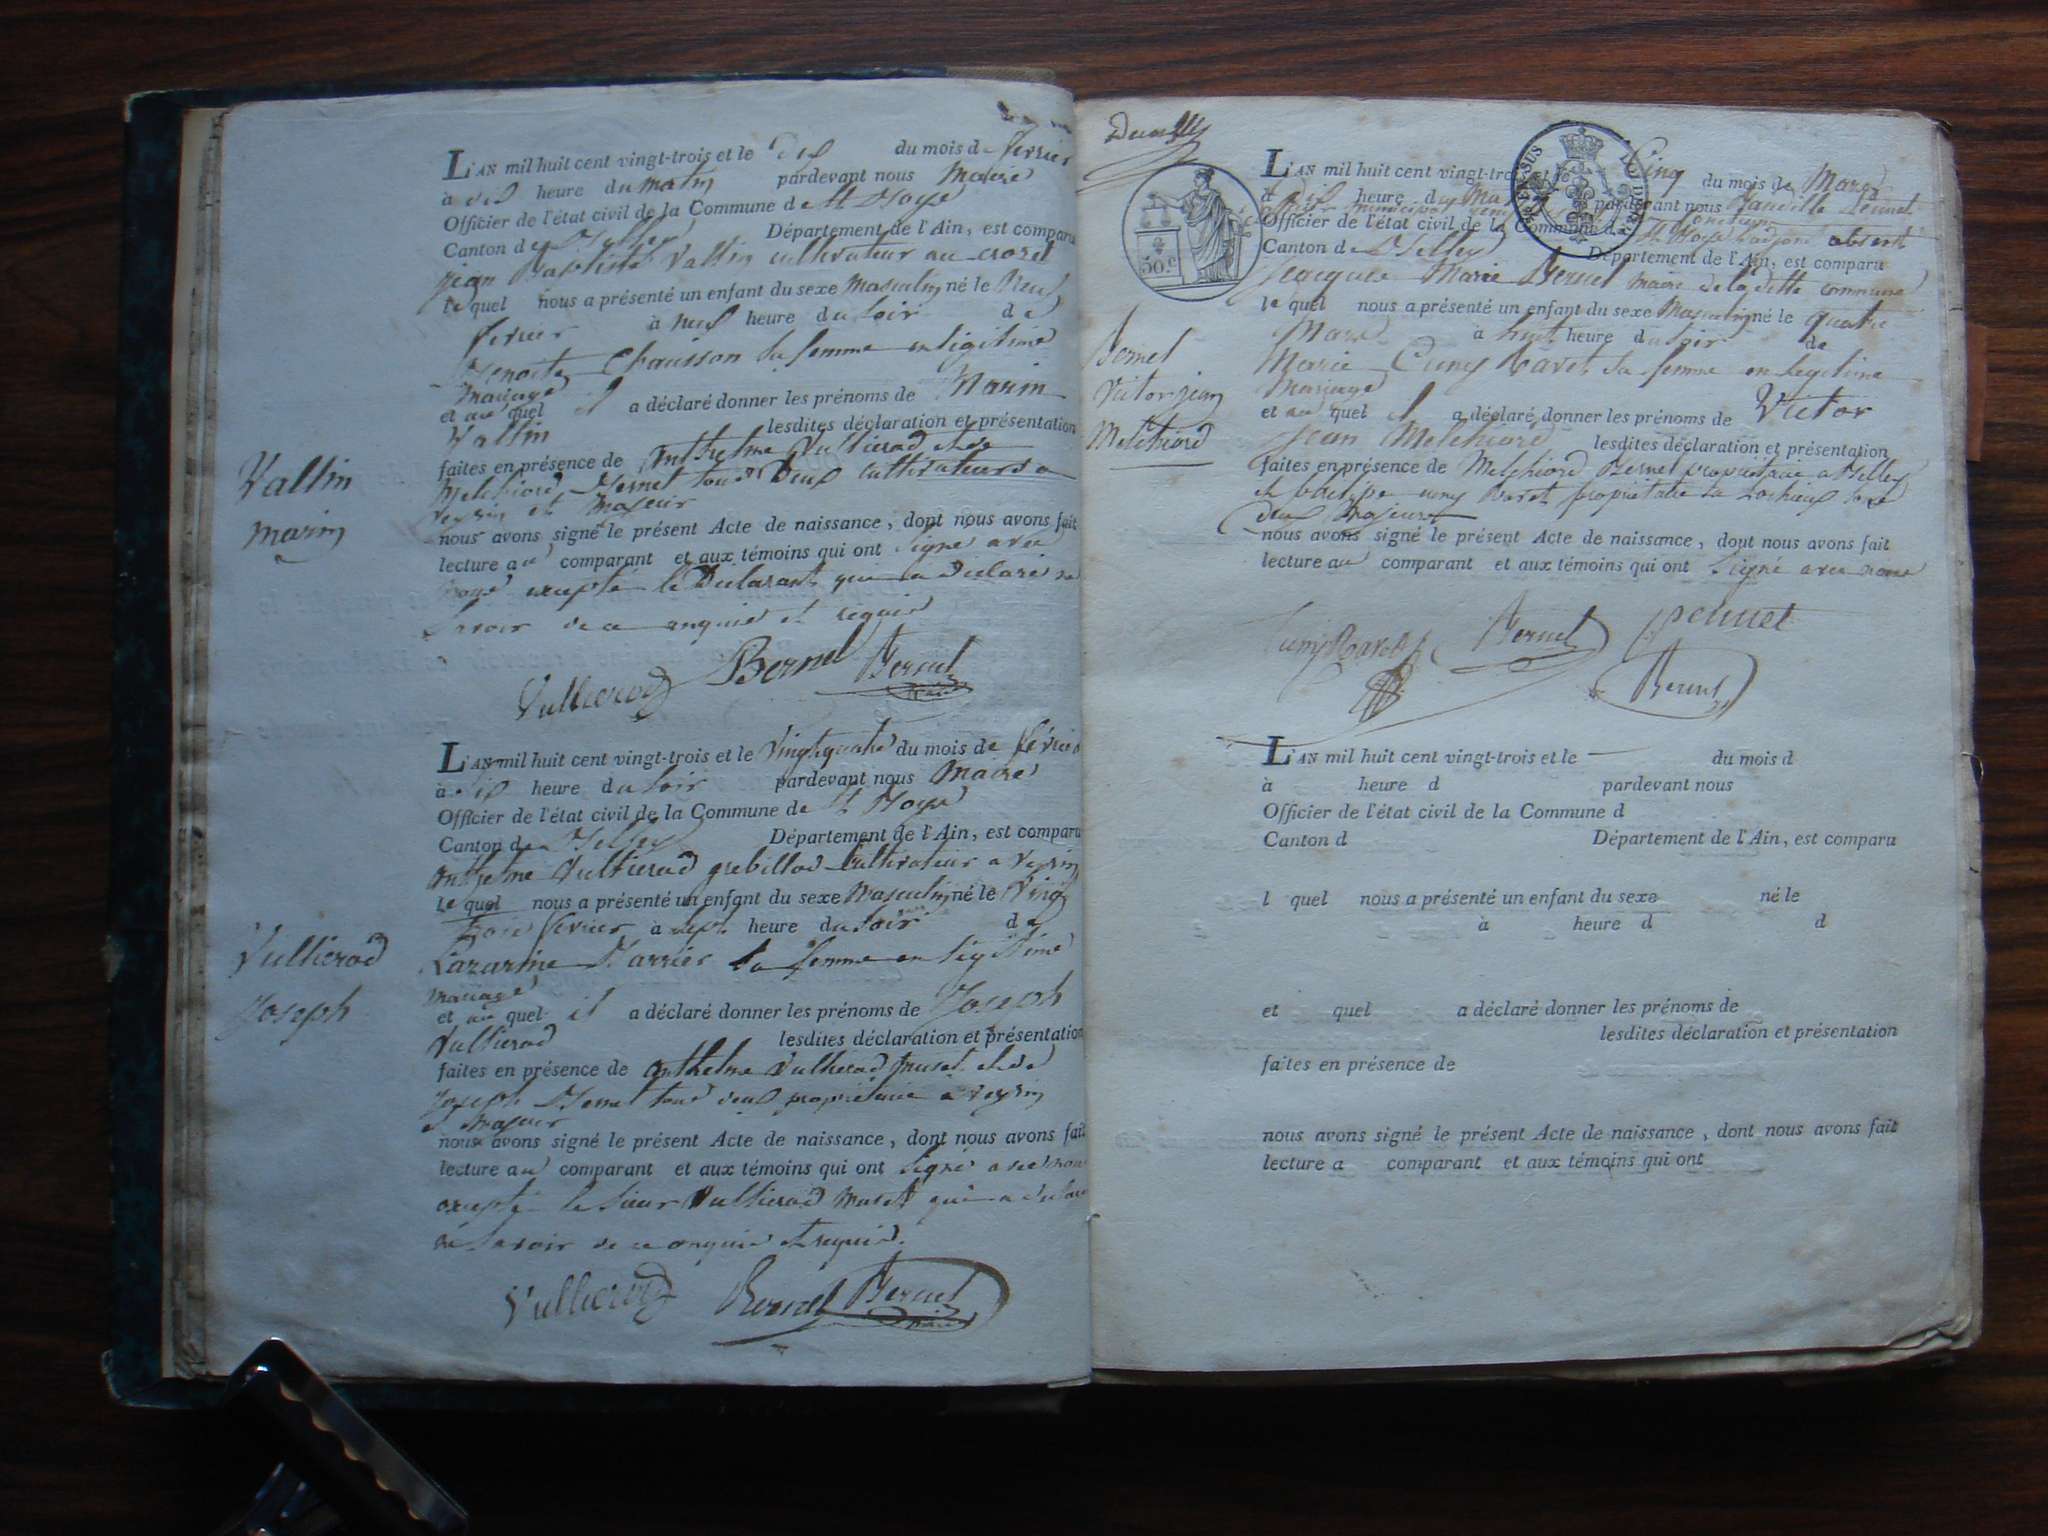 L'AN mil huit cent vingt-trois et le dix du mois de fevrier
à dix heure du matin pardevant nous Maire
Officier de l'état civil de la Commune de
Canton de Belley Département de l'Ain, est comparu
jean Baptiste Vallin cultivateur au crozet
le quel nous a présenté un enfant du sexe masculin né le Neuf
fevrier à neuf heure du soir de
Benoite Chausson sa femme en legitime
mariage
et au quel il a déclaré donner les prénoms de Marin
Vallin lesdites déclaration et présentation
faites en présence de anthelme Vullierod et de
Melchiord Bernel tous Deux cultivateurs a
veyrin et majeur
nous avons signé le présent Acte de naissance, dont nous avons fait
lecture au comparant et aux témoins qui ont signé avec
nous excepté le Déclarant qui a déclaré ne
savoir de ce enquis et requis
Vullierod Bernel Bernel
maire
Vallin
marin
L'AN mil huit cent vingt-trois et le vingt quatre du mois de fevrier
à six heure du soir pardevant nous Maire
Officier de l'état civil de la Commune de
Canton de Belley Département de l'Ain, est comparu
anthelme Vullierod grebillod cultivateur a veyrin
le quel nous a présenté un enfant du sexe masculin né le Vingt
trois fevrier à sept heure du soir de
Lazarine Barrier sa femme en legitime
mariage
et au quel il a déclaré donner les prénoms de Joseph
Vullierod lesdites déclaration et présentation
faites en présence de anthelme Vullierod et de
joseph Bernel tous deux propriétaire a veyrin
et majeur
nous avons signé le présent Acte de naissance, dont nous avons fait
lecture au comparant et aux témoins qui ont signé avec nous
excepté le sieur Vullierod qui a déclaré
ne savoir de ce enquis et requis.
Vullierod Bernel Bernel
maire
Vullierod
Joseph
50.c
L'AN mil huit cent vingt-trois et le Cinq du mois de Mars
à dix heure du pardevant nous
Officier de l'état civil de la Commune de absent
Canton de Belley Département de l'Ain, est comparu
Jacques Marie Bernel maire de la ditte commune
le quel nous a présenté un enfant du sexe Masculin né le quatre
Mars à huit heure du soir de
Marie Cuny Ravet sa femme en legitime
mariage
et au quel il a déclaré donner les prénoms de Victor
Jean Melchiord lesdites déclaration et présentation
faites en présence de Melchiord Bernel propriétaire a Belley
et Cuny Ravet propriétaire a Lochieu tous
deux majeurs
nous avons signé le présent Acte de naissance, dont nous avons fait
lecture au comparant et aux témoins qui ont signé avec nous
Cuny Ravet Bernel
Bernel
Bernel
Victor jean
Melchiord
L'AN mil huit cent vingt-trois et le du mois d
à heure d pardevant nous
Officier de l'état civil de la Commune d
Canton d Département de l'Ain, est comparu
l quel nous a présenté un enfant du sexe né le
à heure d d
et quel a déclaré donner les prénoms de
lesdites déclaration et présentation
faites en présence de
nous avons signé le présent Acte de naissance, dont nous avons fait
lecture a comparant et aux témoins qui ont